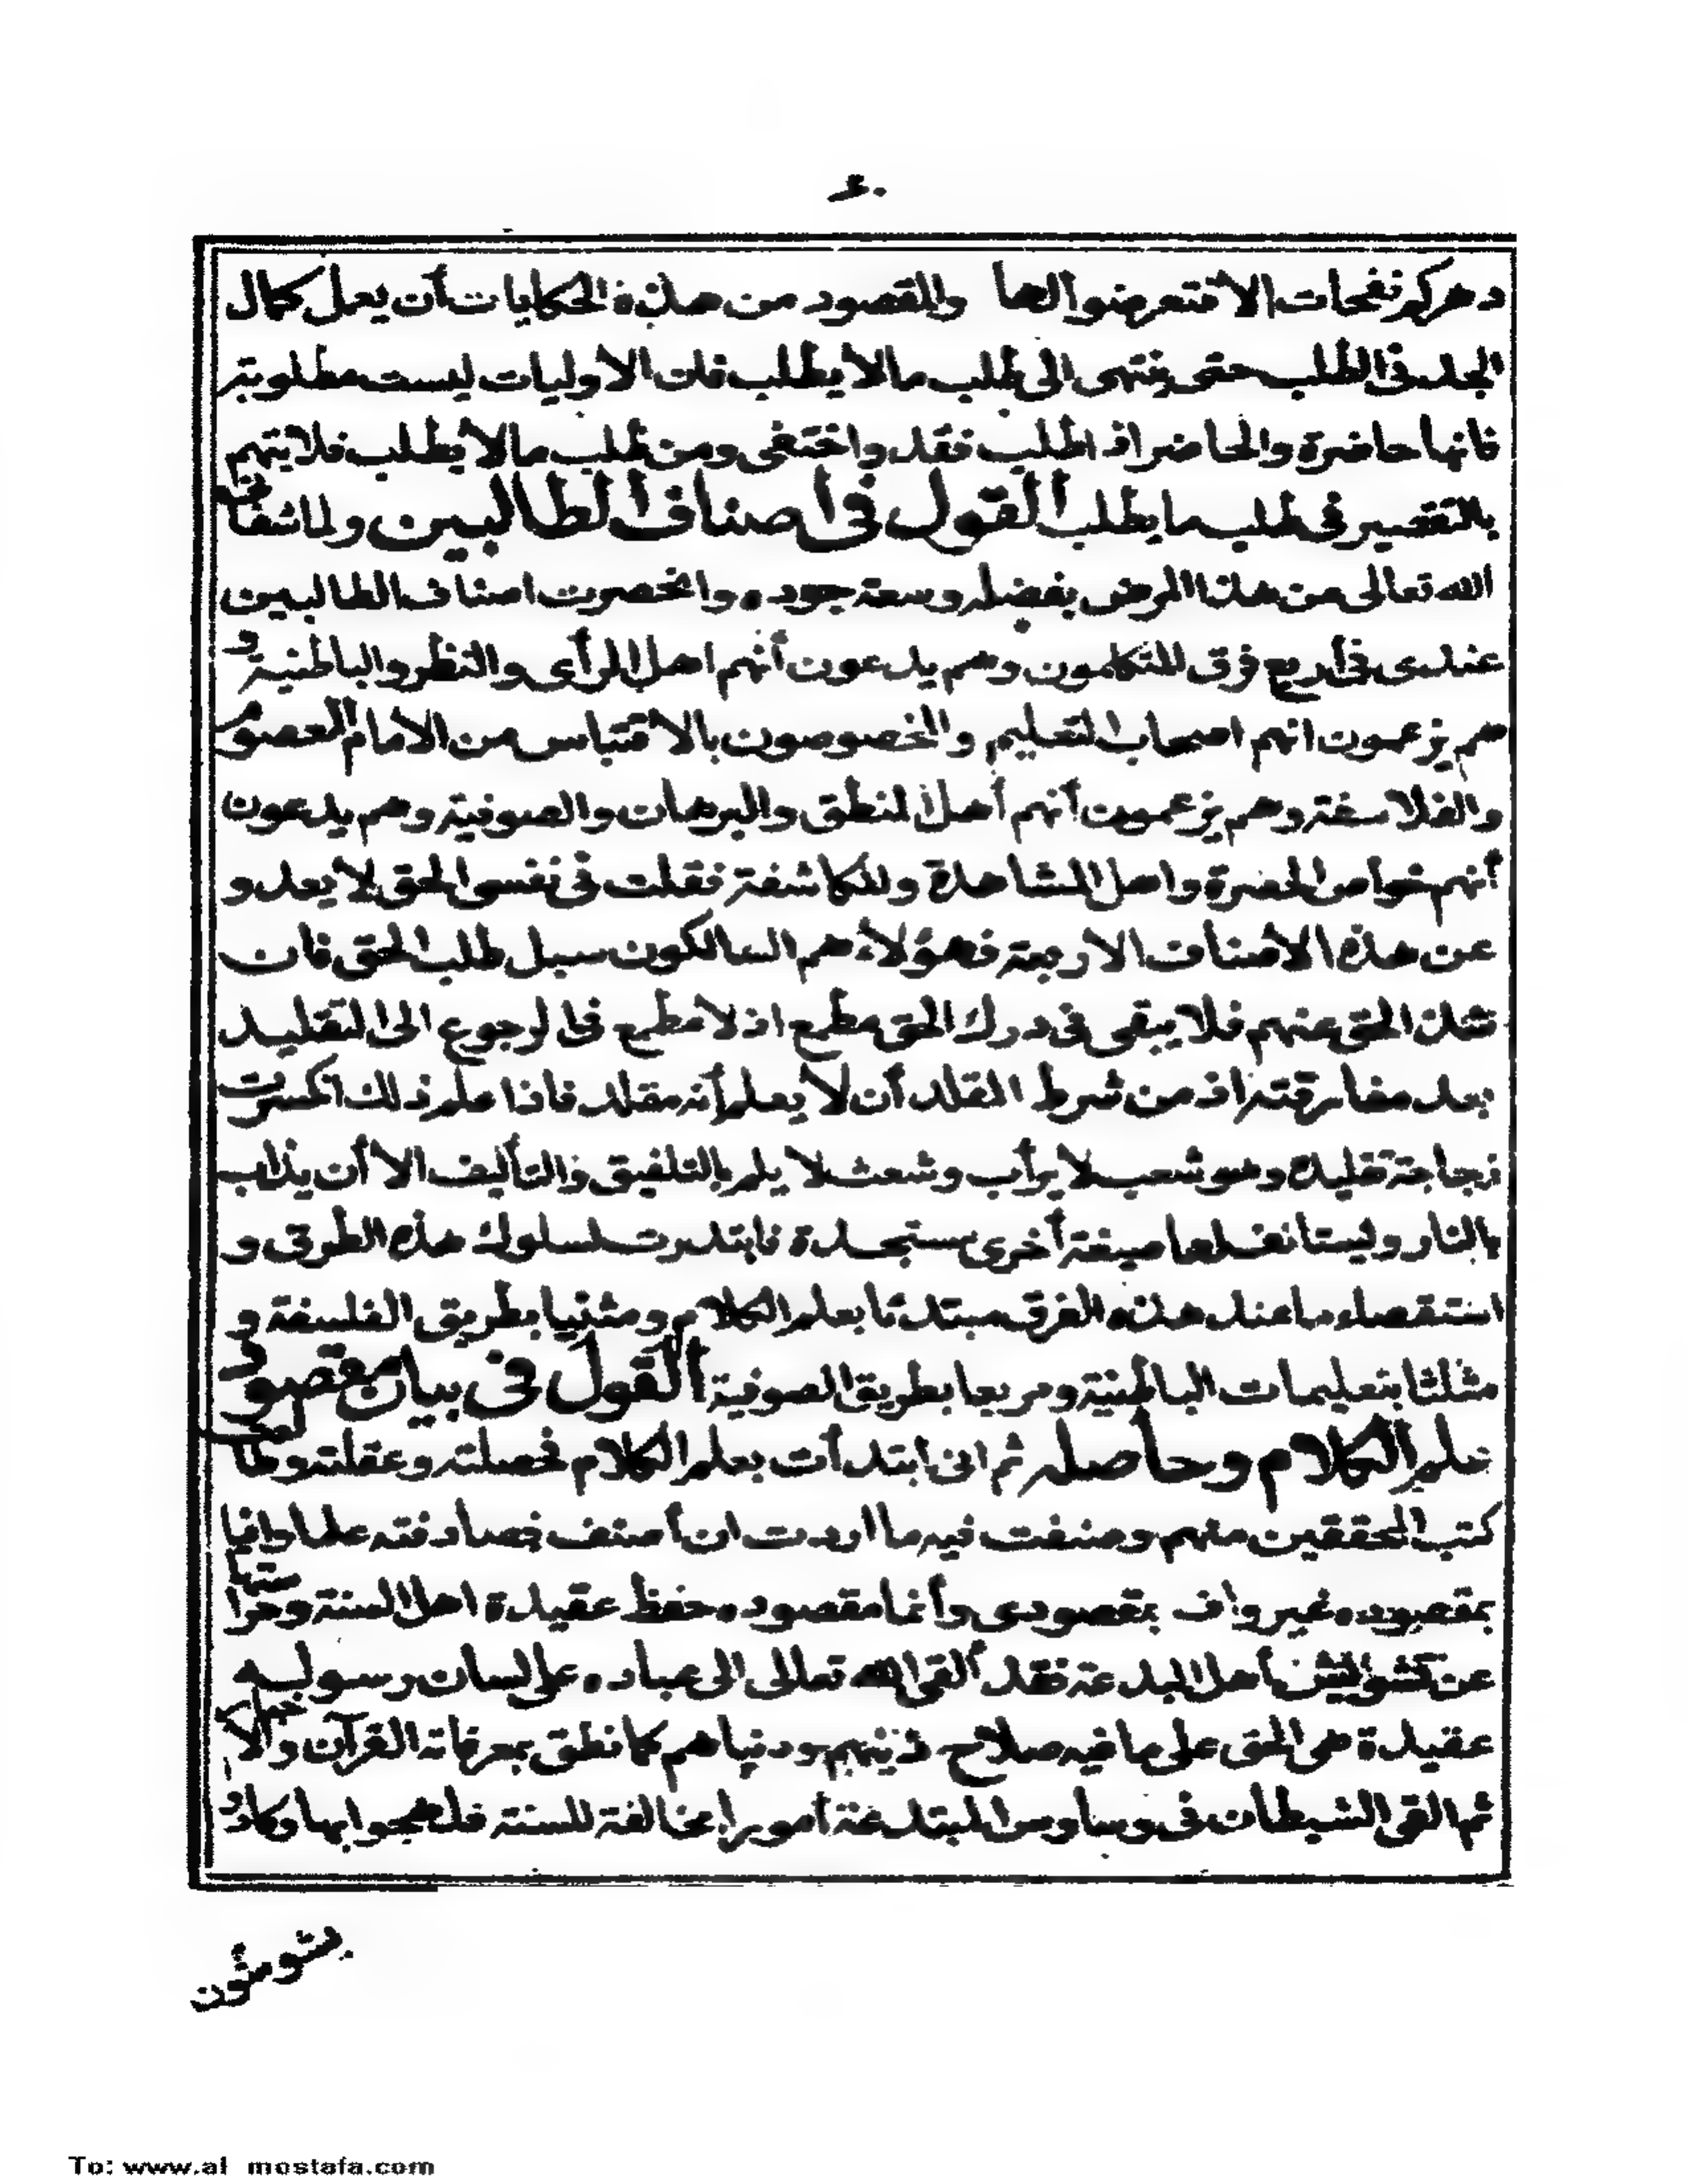 دهركم نفحات الا فتعرضوا لها والمقصود من هذه الحكايات أن يعمل كمال
الجد فى الطلب حتى ينتهى الى طلب مالا يطلب فان الاوليات ليست مطلوبة
فانها حاضرة والحاضر اذ اطلب فقد واختفى ومن طلب مالا يطلب فلا يتهم
بالتقصير فى طلب ما يطلب القول فى أصناف الطالبين ولما شفانى
الله تعالى من هذا المرض بفضله وسعة جوده وانحصرت اصناف الطالبين
عندى فى أربع فرق المتكلمون وهم يدعون أنهم اهل الرأى والنظر والباطنية و
هم يزعمون انهم اصحاب التعليم والمخصوصون بالاقتباس من الامام المعصوم
والفلاسفة وهم يزعمون أنهم أهل المنطق والبرهان والصوفية وهم يدعون
أنهم خواص الحضرة واهل المشاهدة والمكاشفة فقلت فى نفسى الحق لا يعدو
عن هذه الأصناف الاربعة فهؤلاء هم السالكون سبل طلب الحق فان
شذ الحق عنهم فلا يبقى فى درك الحق مطمع اذ لا مطمع فى الرجوع الى التقليد
بعد مفارقته اذ من شرط المقلد أن لا يعلم أنه مقلد فاذا علم ذلك انكسرت
زجاجة تقليده وهو شعب لا يرأب وشعث لا يلم بالتلفيق والتأليف الا أن يذاب
بالنار وليستأنف لها صيغة أخرى مستجدة فابتدرت لسلوك هذه الطرق و
استقصاء ما عند هذه الفرق مبتدئا بعلم الكلام ومثنيا بطريق الفلسفة و
مثلثا بتعليمات الباطنية ومربعا بطريق الصوفية القول فى بيان مقصود
علم الكلام وحاصله ثم انى ابتدأت بعلم الكلام فحصلته وعقلته وطالعت
كتب المحققين منهم وصنفت فيه ما اردت ان أصنف فصادفته علما وافيا
بمقصوده غير واف بمقصودى وأنما مقصوده حفظ عقيدة اهل السنة وحراستها
عن تشويش أهل البدعة فقد ألقى الله تعالى الى عباده على لسان رسوله
عقيدة هى الحق على ما فيه صلاح دينهم ودنياهم كما نطق بمعرفاته القرآن والاخبار
ثم القى الشيطان فى وساوس المبتدعة أمورا مخالفة للسنة فلهجوا بها وكادوا
يشوشون
To: www.al mostafa.com